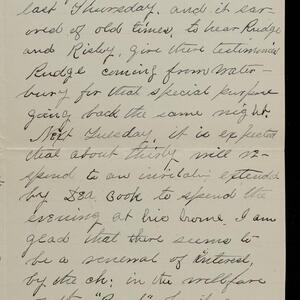 last Thursday, and it sav-
ored of old times, to hear Rudge
and Risley, give their testimonies
Rudge coming from Water-
bury for that special purpose
going back the same night.
Next Tuesday, it is expected
that about thirty will re-
spond to an invitation extended
by Dea. Cook to spend the
evening at his home. I am
glad that there seems to
be a renewal of interest,
by the ch: in the wellfare